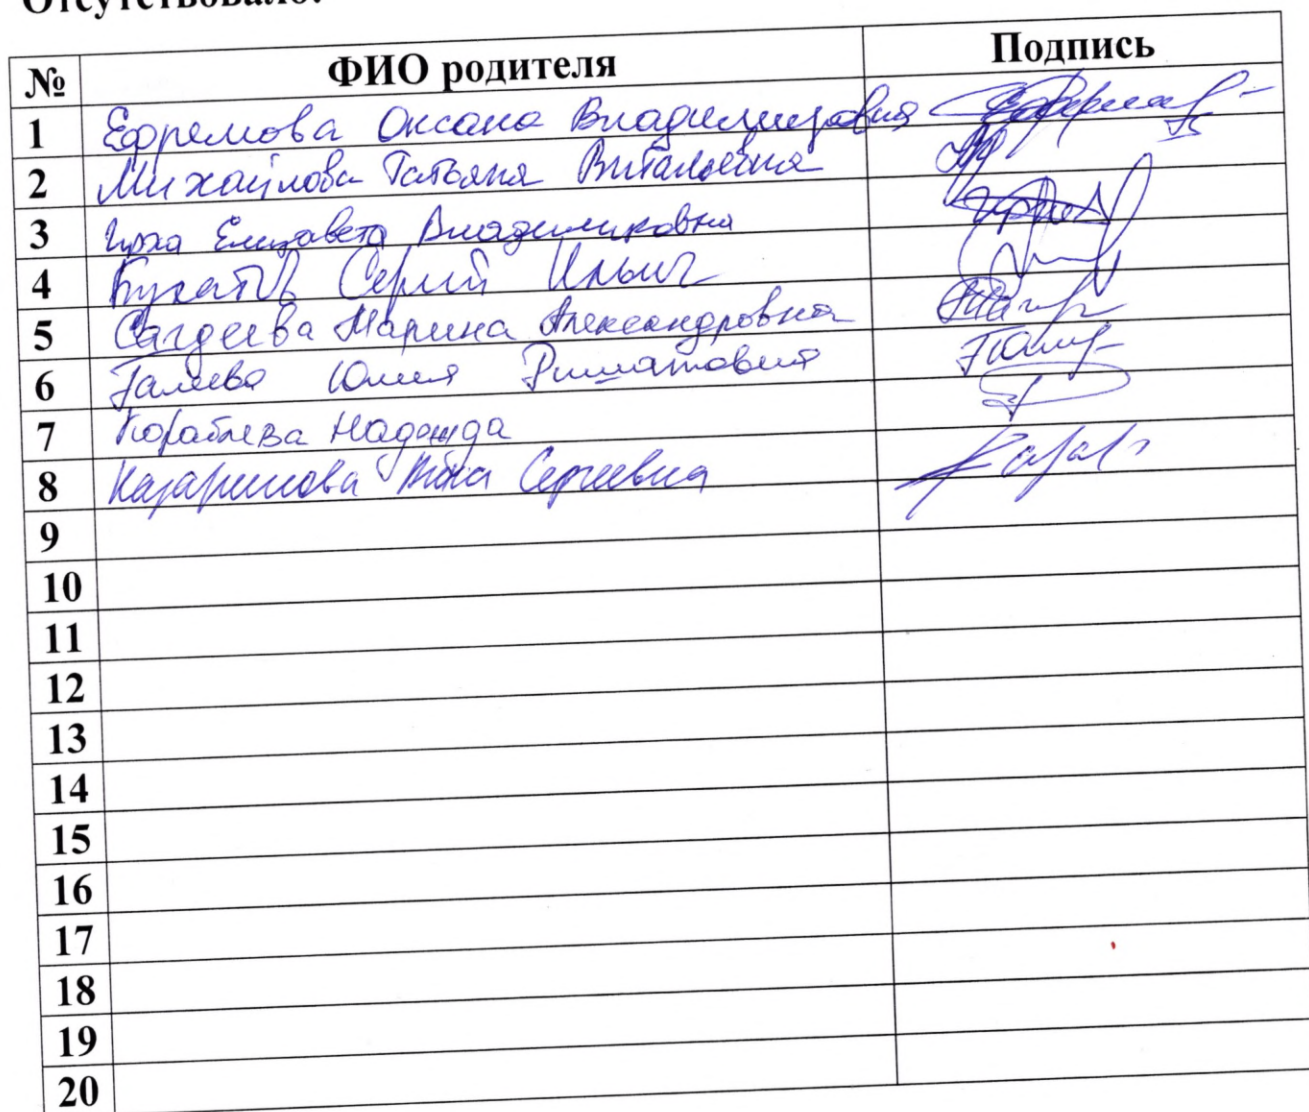 Отсутствовало:
№ ФИО родителя Подпись
1 Ефремова Оксана Владимировна
2 Михайлова Татьяна Витальевна
3 Елизавета Владимировна
4 Сергей Ильич
5 Сагдеева Марина Александровна
6 Галеева Юлия Ришатовна
7 Кораблева Надежда
8 Казаринова Сергеевна
9
10
11
12
13
14
15
16
17
18
19
20